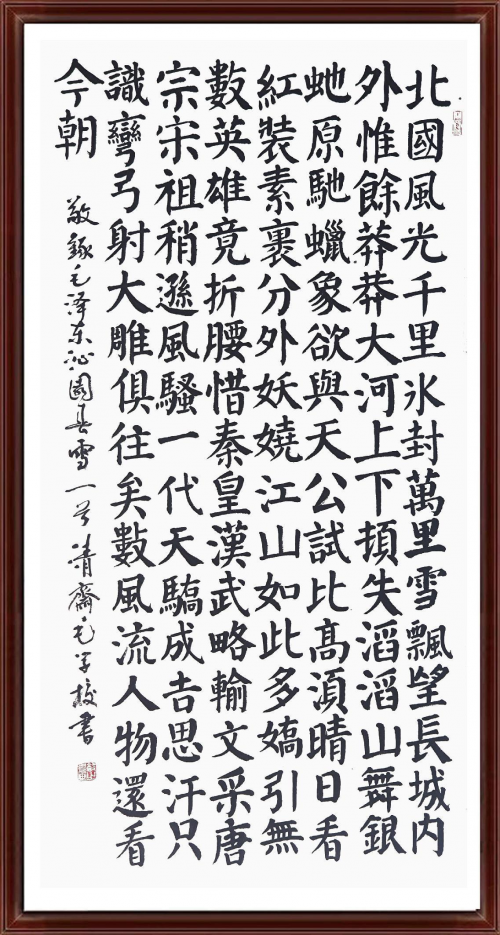 北國風光千里氷封萬里雪飄望長城内
外惟餘莽莽大河上下頓失滔滔山舞銀
虵原馳蠟象欲與天公試比高湏晴日看
紅裝素裹分外妖嬈江山如此多嬌引無
數英雄竟折腰惜秦皇漢武略輸文采唐
宗宋祖稍遜風騷一代天驕成吉思汗只
識彎弓射大雕俱往矣數風流人物還看
今朝
敬錄毛泽东沁園春雪一首 清齋毛学校書